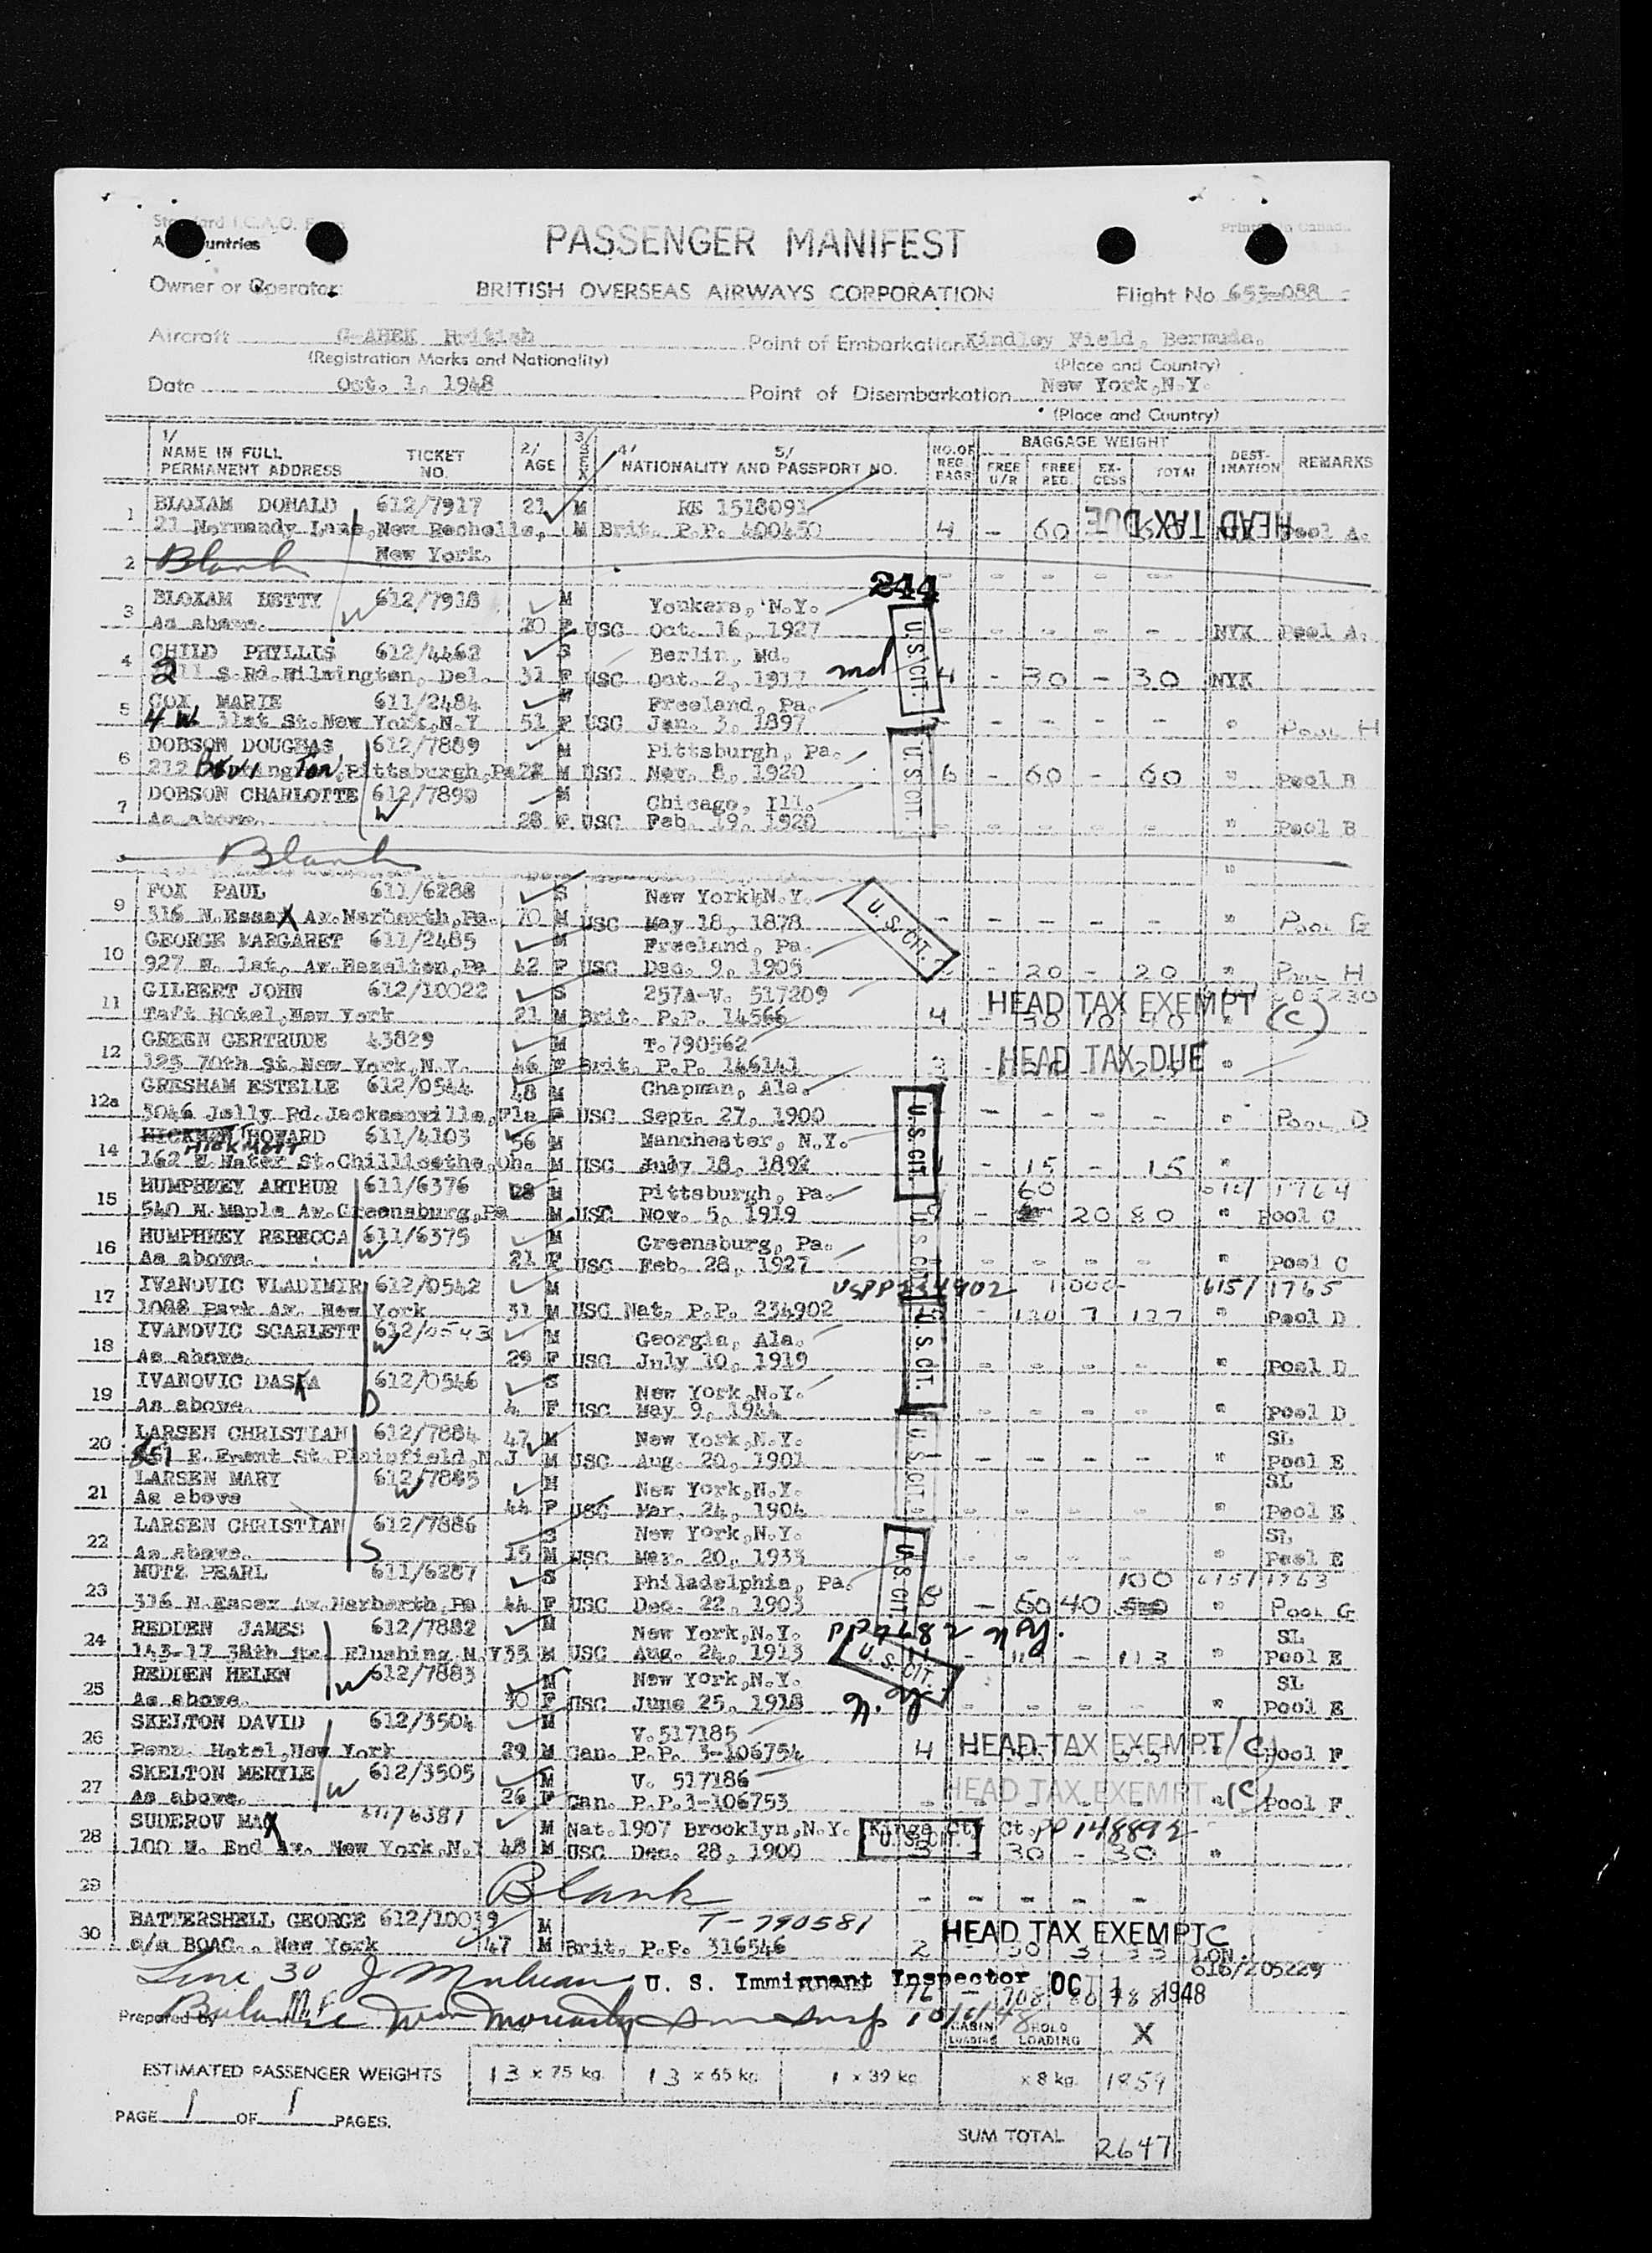 Standard I.C.A.O. Form
Printed in Canada
PASSENGER MANIFEST
Owner or Operator: BRITISH OVERSEAS AIRWAYS CORPORATION Flight No 653-088
Aircraft G-AHEK British Point of Embarkation Kindley Field, Bermuda.
(Registration Marks and Nationality) (Place and Country)
Date Oct. 1, 1948 Point of Disembarkation New York,N.Y.
(Place and Country)
1/ NAME IN FULL PERMANENT ADDRESS TICKET NO. 2/ AGE 3/ SEX 4/ 5/ NATIONALITY AND PASSPORT NO. NO.OF REG. BAGS BAGGAGE WEIGHT FREE U/R FREE REG. EX-CESS TOTAL DEST-INATION REMARKS
1 BLOXAM DONALD 612/7917 21 M RE 1518091
21 Normandy Lane,New Rochelle, M Brit. P.P. 400450 4 - 60 - HEAD TAX DUE Pool A.
New York.
2 Blank - - - - -
244
BLOXAM BETTY 612/7918 M Yonkers, N.Y.
3 As above. W 20 F USC Oct. 16, 1927 U.S. CIT. - - - - - NYK Pool A.
CHILD PHYLLIS 612/4462 S Berlin, Md.
4 2 11 S.Rd.Wilmington, Del. 31 F USC Oct. 2, 1917 md 4 - 30 - 30 NYK
COX MARIE 611/2484 Freeland, Pa.
5 4 W 31st St.New York,N.Y 51 F USC Jan. 3, 1897 - - - - " Pool H
DOBSON DOUGLAS 612/7889 M Pittsburgh, Pa.
6 212 Pittsburgh,Pa M USC Nov. 8, 1920 U.S. CIT. 6 - 60 - 60 " Pool B
DOBSON CHARLOTTE 612/7890 M Chicago, Ill.
7 As above. W 28 F USC Feb. 19, 1920 - - - - - " Pool B
Blank "
FOX PAUL 611/6288 S New York,N.Y.
9 316 N.Essex Av.Narberth,Pa. 70 M USC May 18, 1878 U.S. CIT. - - - - - " Pool G
GEORGE MARGARET 611/2485 M Freeland, Pa.
10 927 N. 1st, Av.Hazelton,Pa 42 F USC Dec. 9, 1905 - 20 - 20 " Pool H
GILBERT JOHN 612/10022 S 257A-V. 517209 HEAD TAX EXEMPT
11 Taft Hotel,New York 21 M Brit. P.P. 14566 4 - 30 10 40 " (C)
GREEN GERTRUDE 43829 M T.790562
12 125 70th St.New York,N.Y. 46 F Brit. P.P. 146141 HEAD TAX DUE "
GRESHAM ESTELLE 612/0544 48 M Chapman, Ala.
12a 3046 Jolly Rd.Jacksonville,Fla F USC Sept. 27, 1900 U.S. CIT. - - - - " Pool D
HICKMOTT HOWARD 611/4103 56 M Manchester, N.Y.
14 162 E.Water St.Chillicothe,Oh. M USC July 18, 1892 - 15 - 15 "
HUMPHREY ARTHUR 611/6376 28 M Pittsburgh, Pa. 60 615/ 1764
15 540 N.Maple Av.Greensburg,Pa M USC Nov. 5, 1919 - 20 80 " Pool C
HUMPHREY REBECCA 611/6375 M Greensburg, Pa. U.S. CIT.
16 As above. W 21 F USC Feb. 28, 1927 - - - - - " Pool C
IVANOVIC VLADIMIR 612/0542 M USPP234902 615/ 1765
17 1088 Park Av. New York 31 M USC Nat. P.P. 234902 - 130 7 137 " Pool D
IVANOVIC SCARLETT 612/0543 M Georgia, Ala. U.S. CIT.
18 As above. W 29 F USC July 10, 1919 - - - - - " Pool D
IVANOVIC DASKA 612/0546 S New York,N.Y.
19 As above. D 4 F USC May 9, 1944 - - - - " Pool D
LARSEN CHRISTIAN 612/7884 47 M New York,N.Y. SL
20 E.Front St.Plainfield,N.J. M USC Aug. 20, 1901 U.S. CIT. - - - - - " Pool E
LARSEN MARY 612/7885 M New York,N.Y. SL
21 As above W 44 F USC Mar. 24, 1904 - - - - " Pool E
LARSEN CHRISTIAN 612/7886 S New York,N.Y. SL
22 As above. S 15 M USC Mar. 20, 1933 - - - - " Pool E
MUTZ PEARL 611/6287 S Philadelphia, Pa. U.S. CIT. 100 615/1763
23 316 N.Essex Av.Narberth,Pa 44 F USC Dec. 22, 1903 8 - 60 40 " Pool G
REDDEN JAMES 612/7882 M New York,N.Y. SL
24 143-17 38th Flushing N.Y 35 M USC Aug. 24, 1913 U.S. CIT. - 113 - 113 " Pool E
REDDEN HELEN 612/7883 M New York,N.Y. SL
25 As above. W 30 F USC June 25, 1918 - - - - - " Pool E
SKELTON DAVID 612/3504 M V.517185
26 Penn. Hotel,New York 29 M Can. P.P. 3-106754 4 HEAD TAX EXEMPT (C) Pool F
SKELTON MERYLE 612/3505 M V. 517186
27 As above. W 26 F Can. P.P.3-106753 HEAD TAX EXEMPT (C) Pool F
SUDEROV MAX 611/6387 M Nat.1907 Brooklyn,N.Y. Kings Cty Ct. PP 148892
28 100 W. End Av. New York,N.Y 48 M USC Dec. 28, 1900 U.S. CIT. 3 - 30 - 30 "
29 Blank - - - - -
BATTERSHELL GEORGE 612/10039 M T-790581 HEAD TAX EXEMPT C
30 c/o BOAC.. New York 47 M Brit. P.P. 316546 2 - 30 3 33 LON.
616/205229
Line 30 U. S. Immigrant Inspector OCT 1 1948
76 - 708 80 788
Prepared by Balance Wm Moriarty Imm Insp 10/1/48
CABIN LOADING HOLD LOADING X
ESTIMATED PASSENGER WEIGHTS 13 x 75 kg. 13 x 65 kg. 1 x 39 kg x 8 kg. 1859
PAGE 1 OF 1 PAGES.
SUM TOTAL 2647